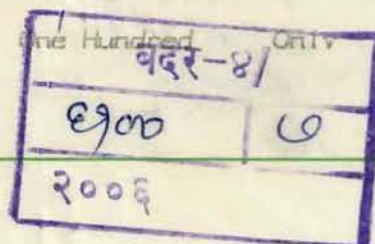 One Hundred Only
वदर-४/
६१०० ७
२००६